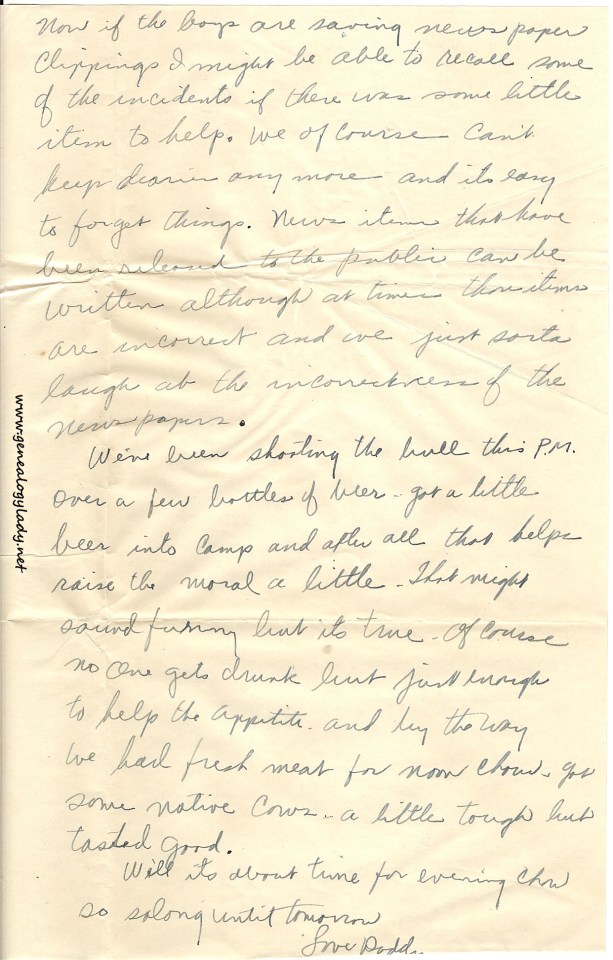 Now if the boys are saving news paper
Clippings I might be able to recall some
of the incidents if there was some little
item to help. We of course can't
keep dearies any more and its easy
to forget things. News items that have
been released to the public can be
written although at times those items
are incorrect and we just sorta
laugh at the incorrectness of the
news papers.
We've been shooting the bull this P.M.
over a few bottles of beer - got a little
beer into camp and after all that helps
raise the moral a little - That might
sound funny but its true - Of course
no one gets drunk but just enough
to help the appetite - and by the way
we had fresh meat for noon chow - got
some native cows - a little tough but
tasted good.
Well its about time for evening chow
so solong until tomorrow
Love Daddy
www.genealogylady.net